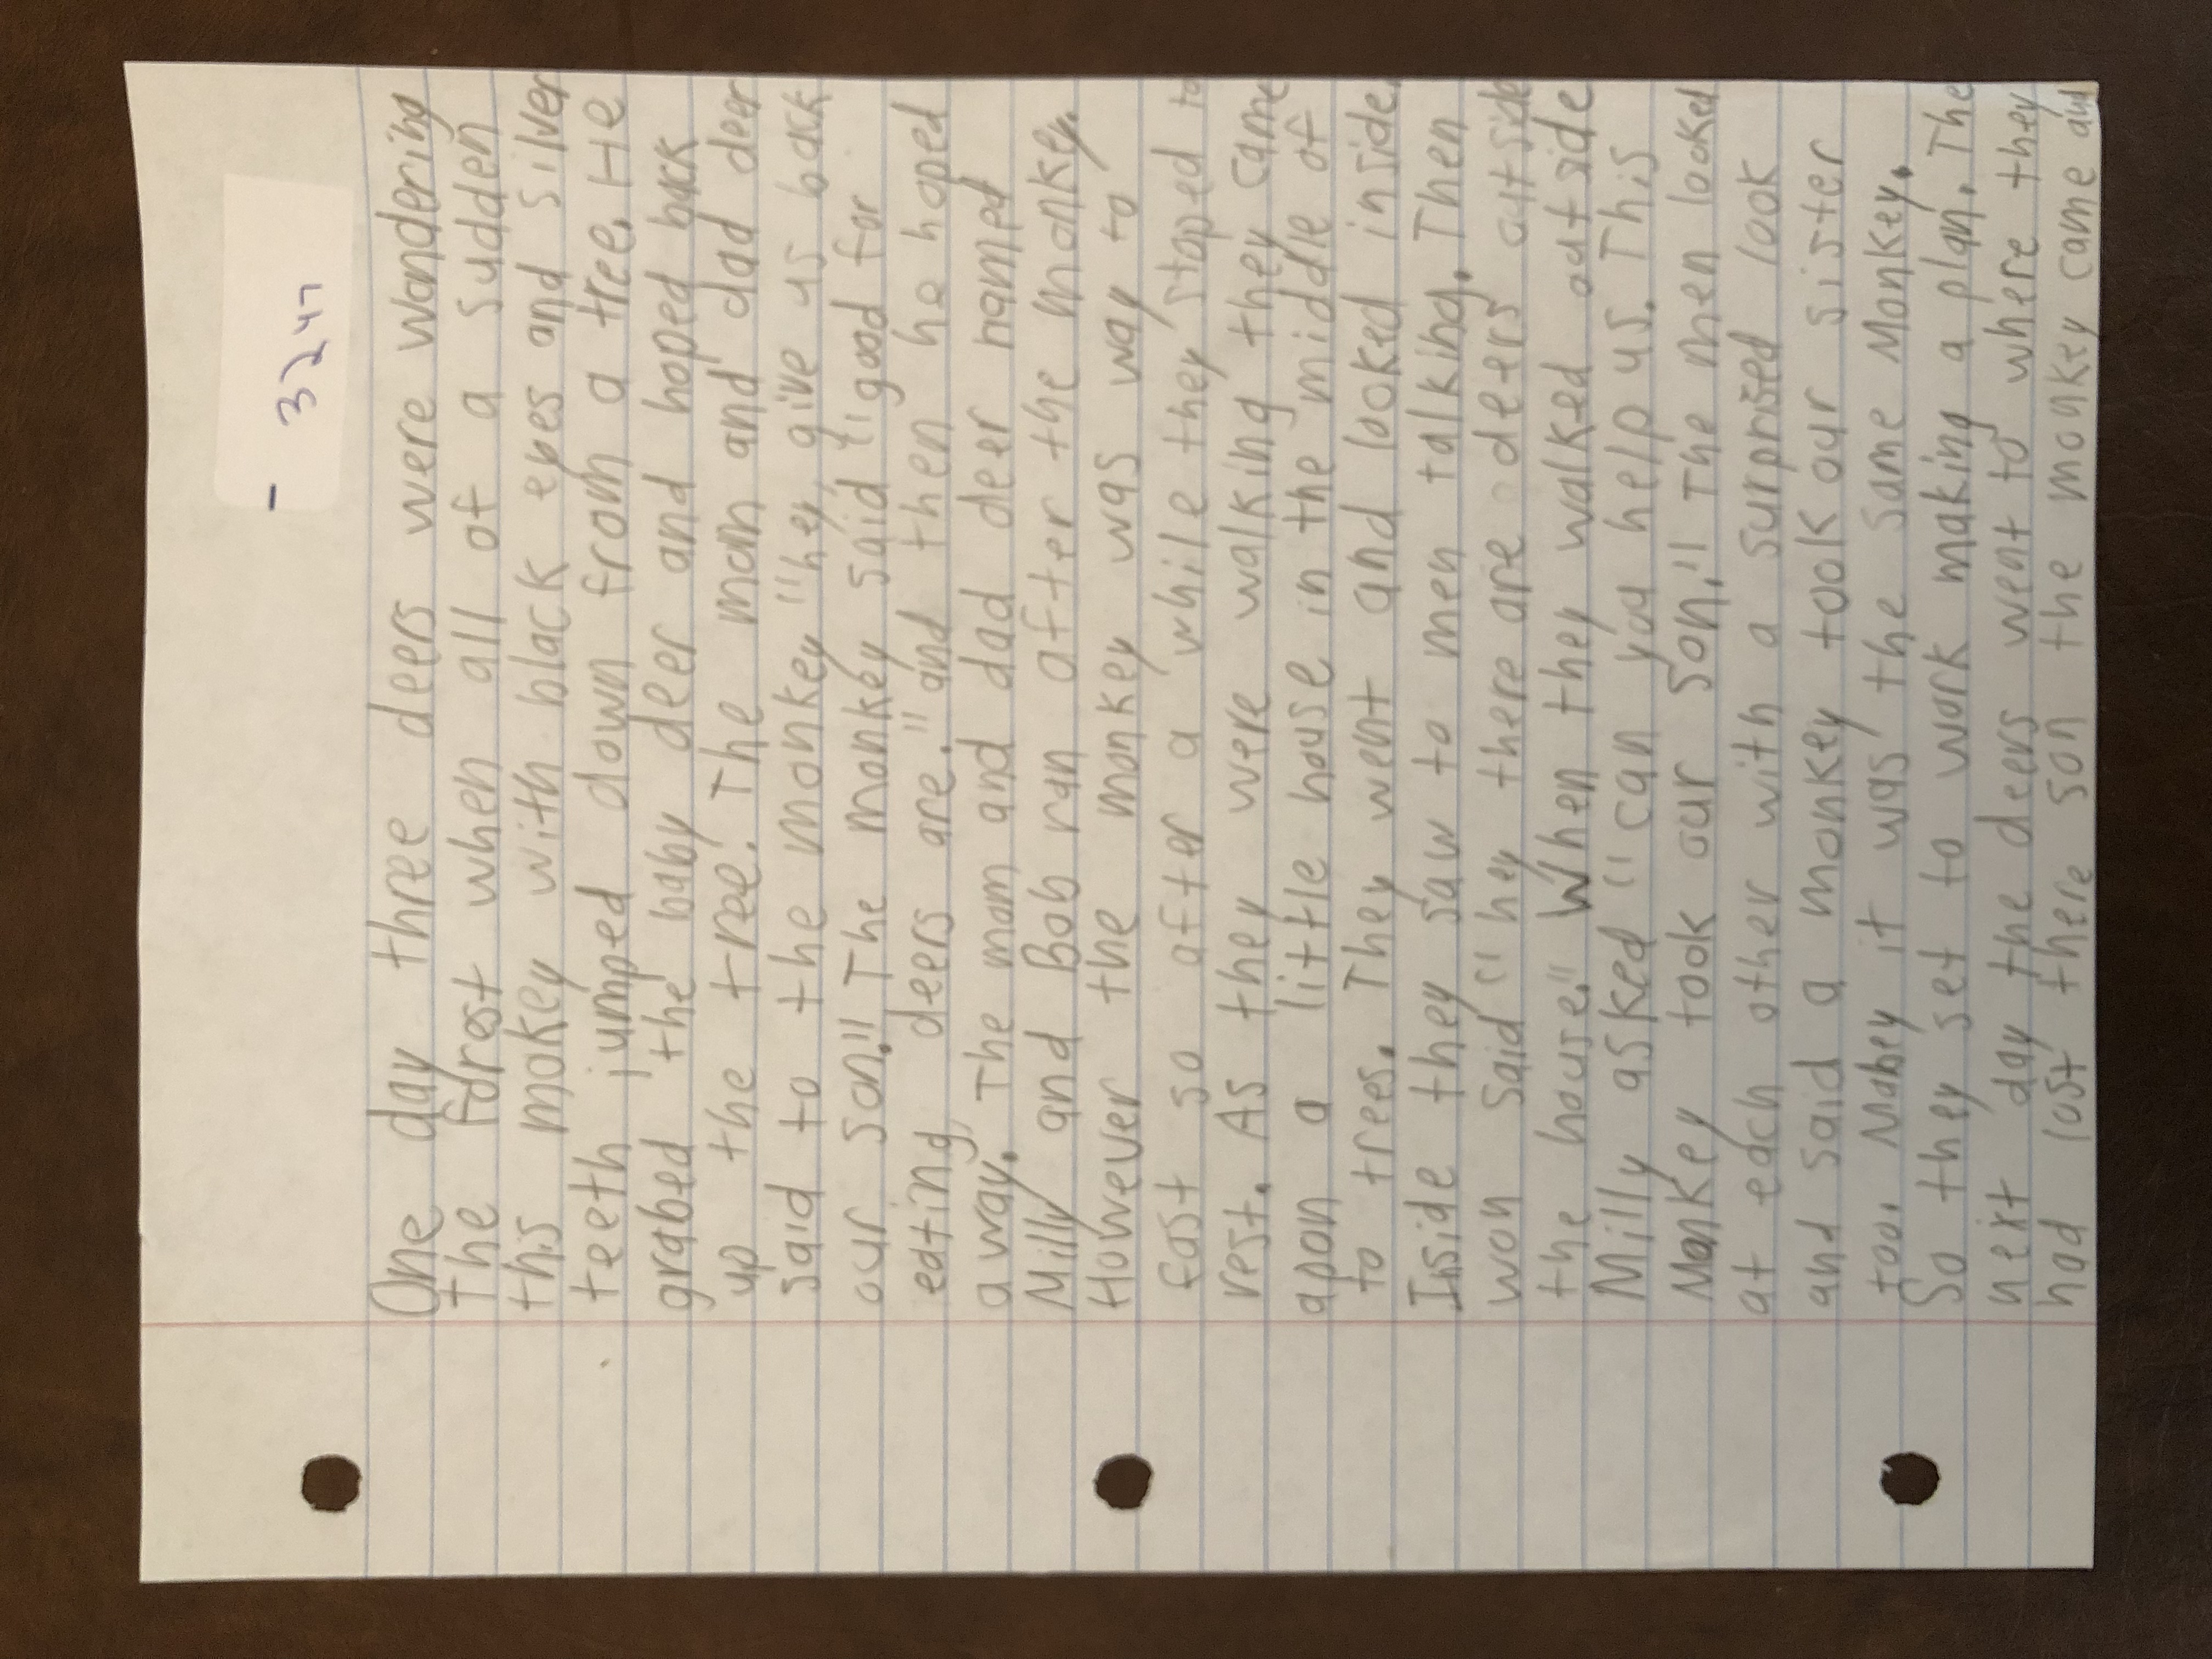 - 3247
One day three deers were wondering
the forest when all of a sudden
this mokey with black eyes and silver
teeth jumped down from a tree. He
grabed the baby deer and hoped back
up the tree. The mom and dad deer
said to the monkey "hey, give us back
our son!" The monkey said "good for
eating, deers are." and then he hoped
away. The mom and dad deer named
Milly and Bob ran after the monkey.
However the monkey was way to
fast so after a while they stoped to
rest. As they were walking they came
apon a little house in the middle of
to trees. They went and looked inside.
Inside they saw to men talking. Then
won said "hey there are deers outside
the house." When they walked outside
Milly asked "can you help us. This
Monkey took our son." The men looked
at each other with a surprised look
and said a monkey took our sister
too. Mabey it was the same Monkey.
So they set to work making a plan. The
next day the deers went to where they
had lost there son the monkey came and